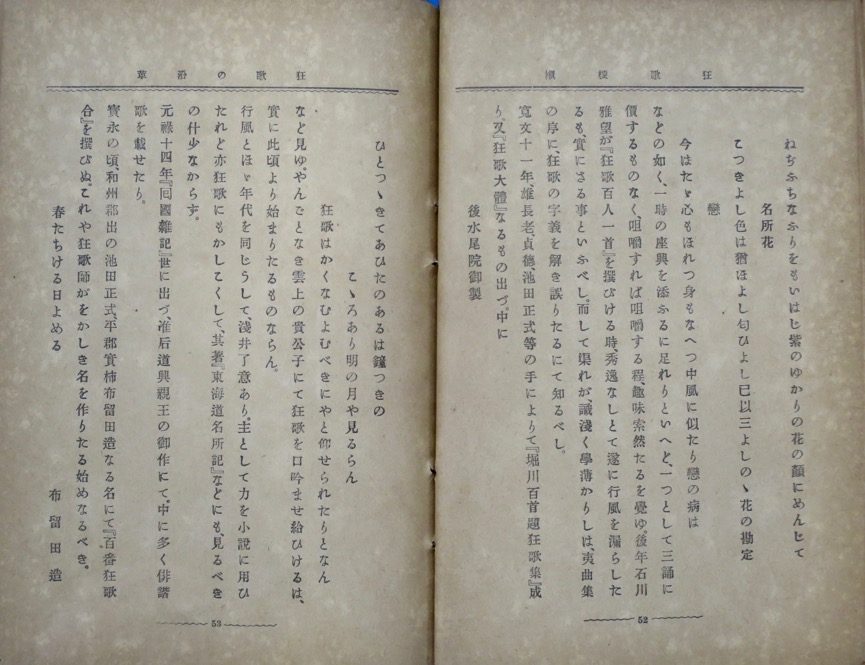 狂歌模範
ねぢふちなふりをもいはじ紫のゆかりの花の顔にめんじて
名所花
こつきよし色は猶ほよし匂ひよし已以三よしのゝ花の勘定
戀
今はたゞ心もほれつ身もなへつ中風に似たり戀の病は
などの如く、一時の座興を添ふるに足れりといへど、一つとして三誦に
價するものなく、咀嚼すれば咀嚼する程、趣味索然たるを覺ゆ。後年石川
雅望が『狂歌百人一首』を撰びける時秀逸なしとて遂に行風を漏らした
るも、實にさる事といふべし。而して渠れが、識淺く學薄かりしは、夷曲集
の序に、狂歌の字義を解き誤りたるにて知るべし。
寛文十一年、雄長老、貞德、池田正式等の手によりて『堀川百首題狂歌集』成
り、又『狂歌大體』なるもの出づ。中に
後水尾院御製
52
狂歌の沿革
ひとつゝきてあひたのあるは鐘つきの
こゝろあり明の月や見るらん
狂歌はかくなむよむべきにやと仰せられたりとなん
など見ゆ。やんごとなき雲上の貴公子にて狂歌を口吟ませ給ひけるは、
實に此頃より始まりたるものならん。
行風とほゞ年代を同じうして、淺井了意あり。主として力を小説に用ひ
たれど亦狂歌にもかしこくして、其著『東海道名所記』などにも、見るべき
の什少なからず。
元祿十四年『囘國雜記』世に出づ、准后道興親王の御作にて。中に多く俳諧
歌を載せたり。
寳永の頃、和州郡出の池田正式、平郡實柿布留田造なる名にて『百番狂歌
合』を撰びぬ。これや狂歌師がをかしき名を作りたる始めなるべき。
春たちける日よめる
布留田造
53